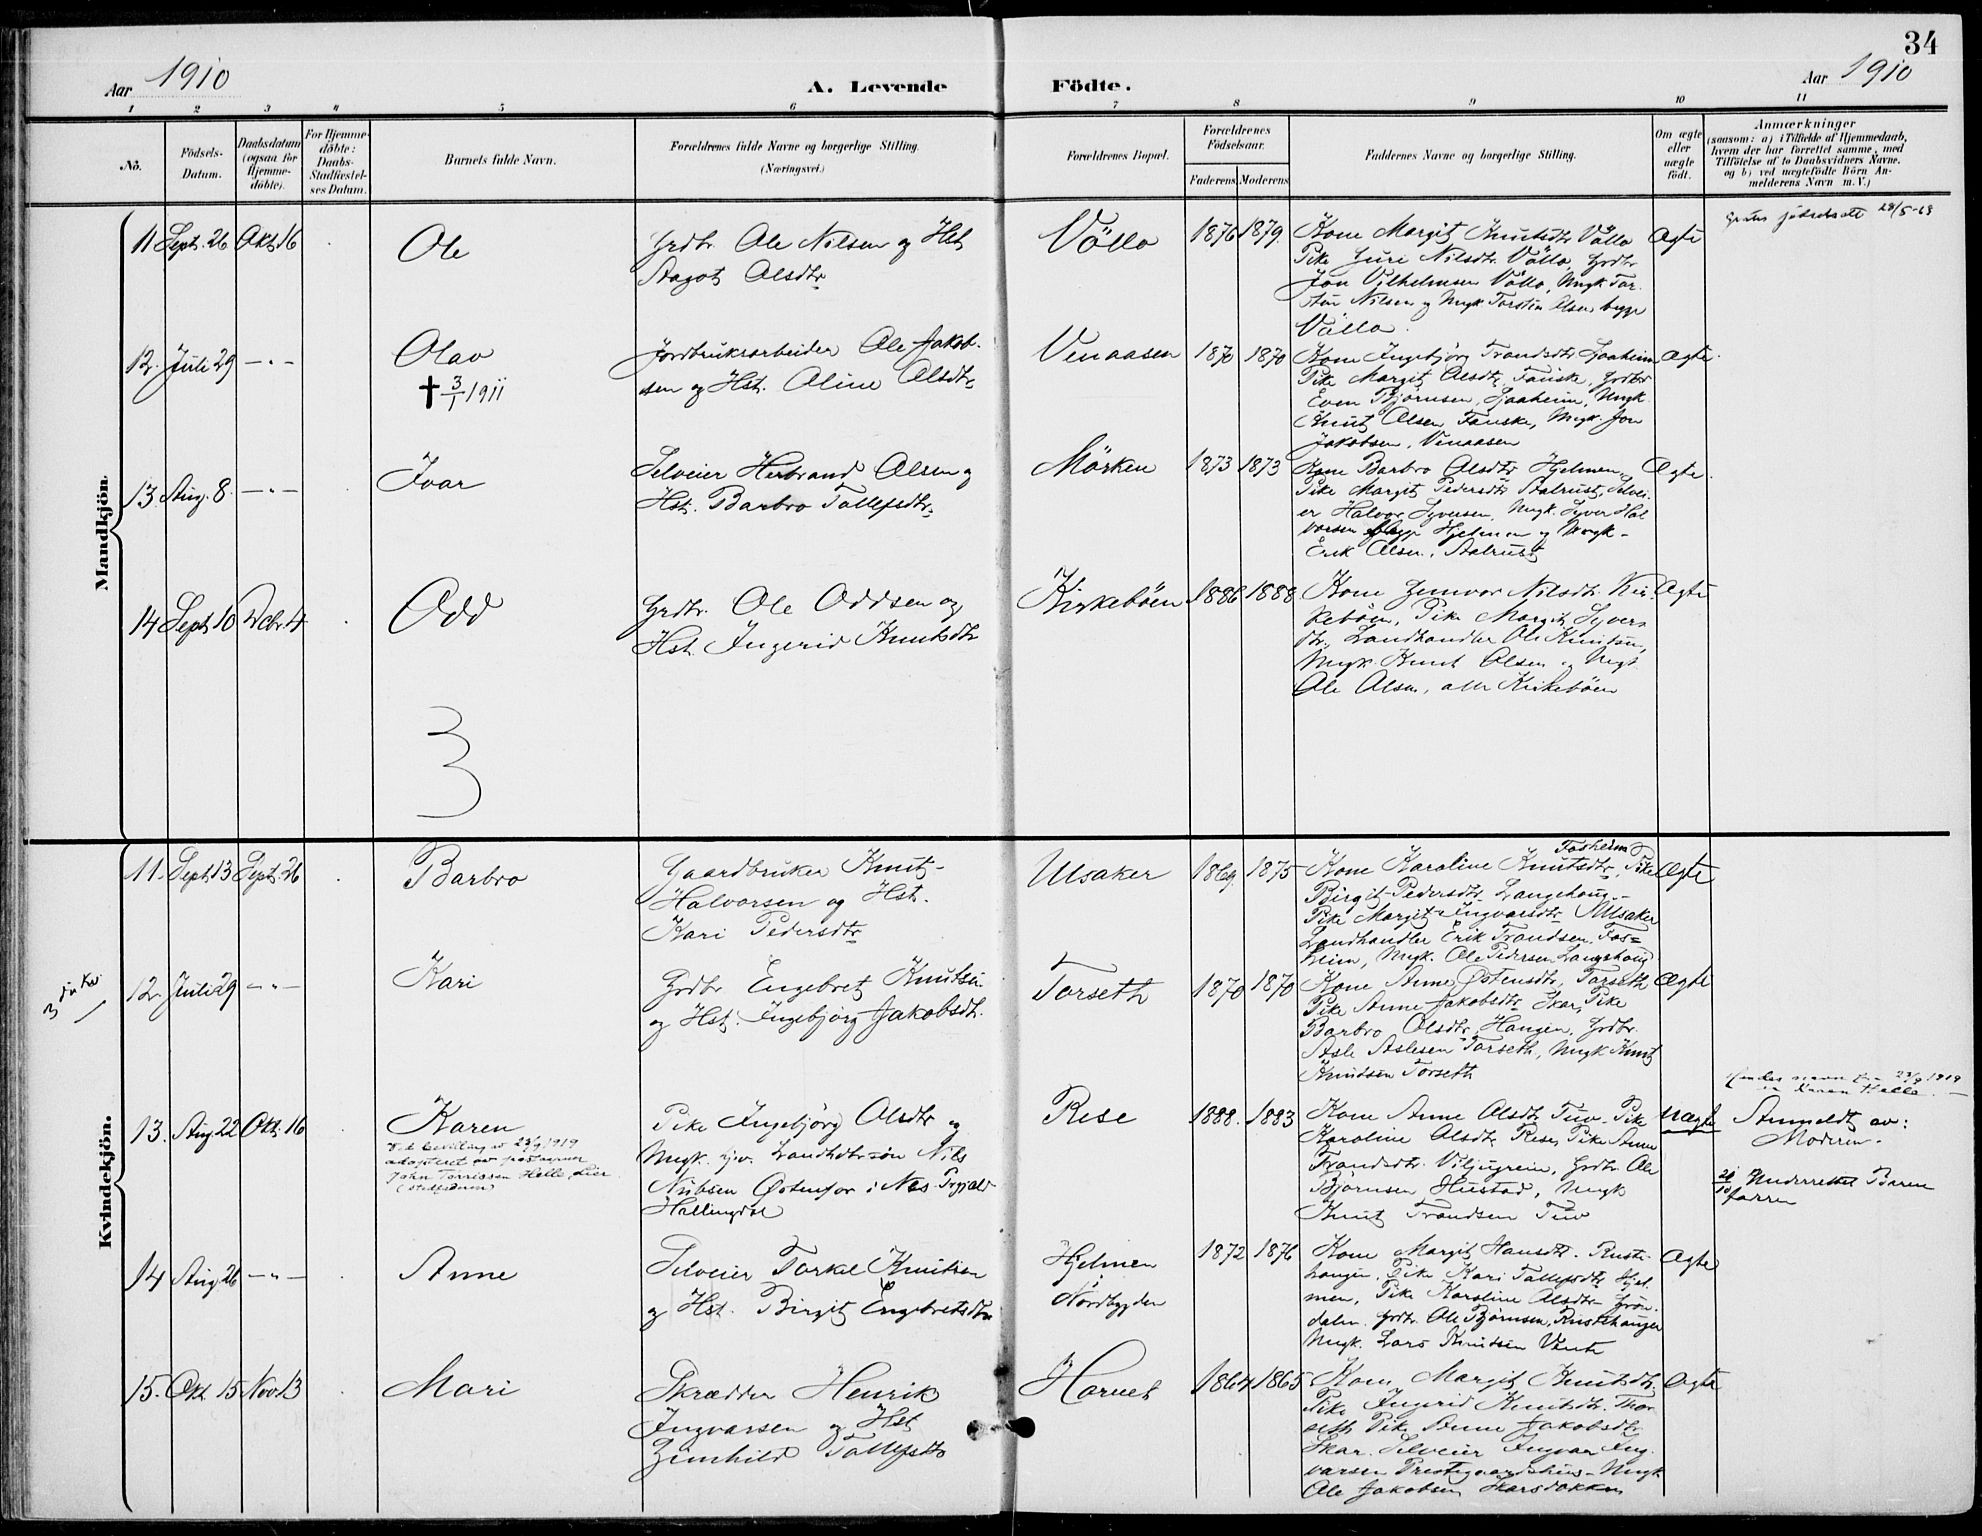 34
Aar 1910
A. Levende Födte.
Aar 1910
1 2 3 4 5 6 7 8 9 10 11
No.
Födsels-
Datum.
Daabsdatum
(ogsaa for
Hjemme-
döbte).
For Hjemme-
döbte:
Daabs-
Stadfæstel-
ses Datum.
Barnets fulde Navn.
Forældrenes fulde Navne og borgerlige Stilling.
(Næringsvei.)
Forældrenes Bopæl.
Forældrenes
Födselsaar.
Faderens. Moderens.
Faddernes Navne og borgerlige Stilling.
Om ægte
eller
uægte
födt.
Anmærkninger
(saasom: a) i Tilfælde af Hjemmedaab,
hvem der har forrettet samme, med
Tilföielse af to Daabsvidners Navne.
og b) ved uægtefödte Börn An-
melderens Navn m. V.)
Mandkjön.
11 Sept. 26 Okt 16
Ole
Grdbr. Ole Nilsen og Hst
Aagot Olsdtr
Völlo
1876 1879.
Kone Margit Knutsdtr Völlo
Pike Guri Nilsdtr. Völlo, Grdbr
Jon Vilhelmsen Völlo, Ungk Tor-
Nilsen og Ungk Torstein Olsen begge
Völlo.
Ægte
28/5-63
12. Juli 29 — " —
Olav
† 3/1 1911
Jordbruksarbeider Ole Jakob-
sen og Hst. Aline Olsdtr
Venaasen
1870 1870
Kone Ingebjörg Trondsdtr Ljaaheim
Pike Margit Olsdtr. Fauske, Grdbr
Even Björnsen, Ljaaheim, Ungk.
Knut Olsen Fauske, Ungk. Jon
Jakobsen, Venaasen
Ægte.
13. Aug. 8. — " —
Ivar
Selveier Herbrand Olsen og
Hst. Barbro Tollefsdtr.
Mörken
1873 1873
Kone Barbro Olsdtr Hjelmen,
Pike Margit Pedersdtr Aalrust, Selvei-
er Halvor Syversen, Ungk. Syver Hal
vorsen begge Hjelmen og Ungk-
Erik Olsen, Aalrust
Ægte.
14 Sept 10 Dcbr. 4
Odd
Grdbr. Ole Oddsen og
Hst. Ingerid Knutsdtr
Kirkeböen
1886 1888
Kone Gunvor Nilsdtr. Kir-
keböen, Pike Margit Syvers
dtr, Landhandler Ole Knutsen,
Ungk. Knut Olsen og Ungk.
Ole Olsen, alle Kirkeböen
Ægte
Kvindekjön.
11. Sept 13 Sept. 26
Barbro
Gaardbruker Knut-
Halvorsen og Hst.
Kari Pedersdtr
Ulsaker
1869. 1875
Fosheim
Kone Karoline Knutsdtr, Pike
Birgit Pedersdtr. Langehoug-
Pike Margit Ingvarsdtr Ulsaker
Landhandler Erik Trondsen, Fos=
heim, Ungk. Ole Pedersen Langehoug
Ægte
3
12. Juli 29 — " —
Kari
Grdbr Engebret Knutsen
og Hst. Ingebjörg Jakobsdtr.
Torseth
1870 1870
Kone Anne Østensdtr, Torseth
Pike Anne Jakobsdtr Skar, Pike
Barbro Olsdtr, Haugen, Grdbr.
Asle Aslesen Torseth, Ungk Knut
Knudsen Torseth
Ægte
13. Aug. 22 Okt. 16
Karen
Ved bevilling av 23/9 1919
adopteret av postaapner
John Torrissen Helle, Lier
Pike Ingebjörg Olsdtr og
Ungk. Landhdlrsön Nils
Nubsen Östenfor i Nes
Hallingdal
Rese
1888. 1883
Kone Anne Olsdtr Tuv, Pike
Karoline Olsdtr. Rese, Pike Anne
Trondsdtr. Viljugrein, Grdbr. Ole
Björnsen Hustad, Ungk
Knut Trondsen Tuv
Uægte
Hendes navn fra 23/9 1919
er Karen Helle.
Anmeldt av:
Moderen.
Underrettet Barne
farren
14 Aug. 26 — " —
Anne
Selveier Torkel Knutsen
og Hst. Birgit Engebretsdtr
Hjelmen
Nordbygden
1872 1876
Kone Margit Hansdtr. Ruste-
haugen, Pike Kari Tollefsdtr Hjel-
men, Pike Karoline Olsdtr Grön-
dalen. Grdbr. Ole Björnsen, Rustehaugen
Ungk. Lars Knutsen
Ægte
15. Okt. 15 Nov. 13
Mari
Skrædder Henrik
Ingvarsen og Hst
Gunhild Tollefsdtr
Harvet
1864 1865
Kone Margit Knutsdtr.
Pike Ingerid Knutsdtr. Thor-
seth Pike Anne Jakobsdtr
Skar. Selveier Ingvar Ing-
varsen Ungk
Ole Jakobsen Skarsdokken
Ægte